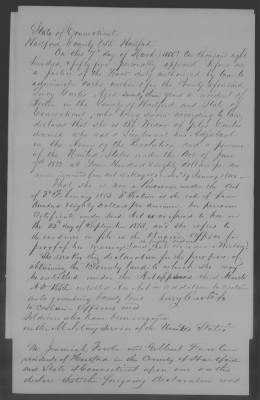 State of Connecticut
Hartford County SS. Hartford
On this 7th day of March 1855 On thousand eight
hundred fifty five personally appeared before me
a Justice of the Peace duly authorized by law to
administer Oaths within & for the County aforesaid
Lucy Curtis Aged years a resident of
in the County of Hartford and State of
Connecticut who being sworn according to law,
declares that she is the Widow of Giles Curtis
deceased who was a Lieutenant and Adjutant
in the Army of the Revolution and a pensioner
of the United States under the Act of June
1832 at Four Hundred & eighty dollars per an-
num
That she is now a pensioner under the Act
of 3d February 1853 at the rate of
hundred & eighty dollars per annum her pension
Certificate under said Act issued to her on
the 22d day of September 1853, and she refers to
the evidence on file in the Pension Office for
proof of her marriage and that she is a Widow.
She makes this declaration for the purpose of
obtaining the Bounty Land to which she may
be entitled under the Act approved third March
A.D. 1855 entitled An Act in addition to certain
acts granting bounty land
to certain Officers and
Soldiers who have been engaged
in the Military Service of the United States
We Jeremiah Fowler and Gilbert
residents of Hartford in the County of Hartford
and State of Connecticut upon our oaths
declare that the foregoing declaration was